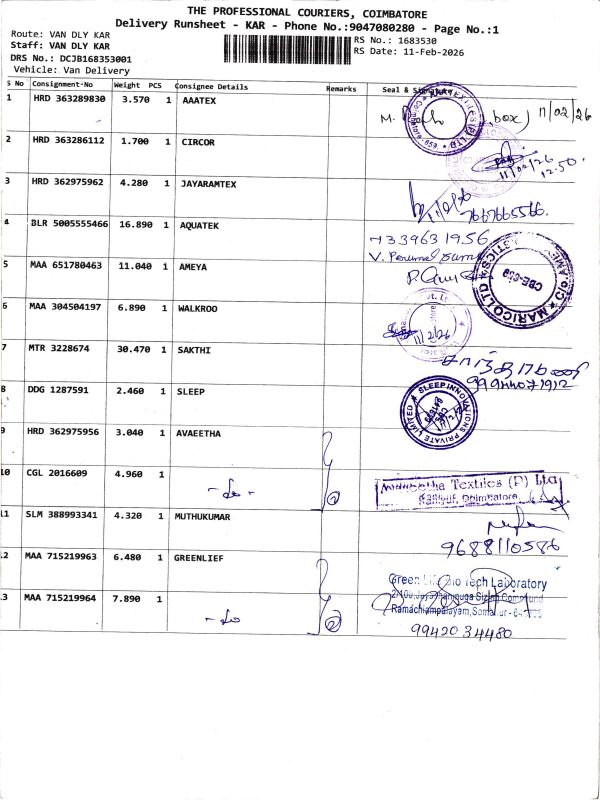 THE PROFESSIONAL COURIERS, COIMBATORE
Delivery Runsheet - KAR - Phone No.:9047080280 - Page No.:1
Route: VAN DLY KAR
Staff: VAN DLY KAR
DRS No.: DCJB168353001
Vehicle: Van Delivery
RS No.: 1683530
RS Date: 11-Feb-2026
S No Consignment-No Weight PCS Consignee Details Remarks Seal &
1 HRD 363289830 3.570 1 AAATEX
(box) 11/02/26
2 HRD 363286112 1.700 1 CIRCOR
11/02/26
12.50.
3 HRD 362975962 4.280 1 JAYARAMTEX
7667665566.
4 BLR 5005555466 16.890 1 AQUATEK
7339631956
5 MAA 651780463 11.040 1 AMEYA
MARICO LTD
CBE-009
6 MAA 304504197 6.890 1 WALKROO
11/2/26
7 MTR 3228674 30.470 1 SAKTHI
99944071912
8 DDG 1287591 2.460 1 SLEEP
SLEEP INNOVATIONS PRIVATE LIMITED
9 HRD 362975956 3.040 1 AVAEETHA
10 CGL 2016609 4.960 1
Textiles (P) Ltd
Coimbatore
11 SLM 388993341 4.320 1 MUTHUKUMAR
9688110586
12 MAA 715219963 6.480 1 GREENLIEF
Tech Laboratory
13 MAA 715219964 7.890 1
Ramachiampalayam,
9942034480